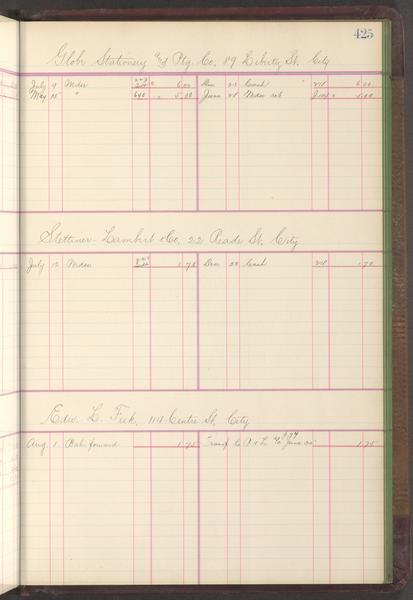 425
Globe Stationery and Ptg. Co. 89 Liberty St. City
July 9 Mdse 6.00 Dec 23 Cash 218 6.00
May 15 " 640 " 5.00 June 28 Mdse ret 5.00
Stettiner-Lambert & Co, 22 Reade St. City
July 12 Mdse 1.78 Dec 23 Cash 218 1.78
Edw. L. Fick, 114 Centre St. City
Aug. 1 Bal. forward 1.75 Transf to P & L June 30 1.75